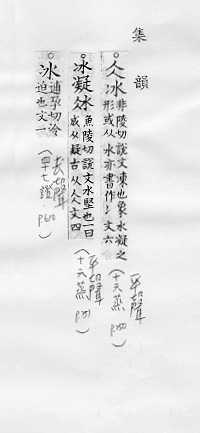 集韻
仌冰 非陵切說文凍也象水凝之
冫形或从水亦書作冫文六
平聲
(十六蒸 p250)
冰凝 魚陵切說文水堅也一曰
成或从疑古从仌文四
平聲
(十六蒸)
冰 逋孕切冷
迫也文一
去聲
(四十七證 p610)